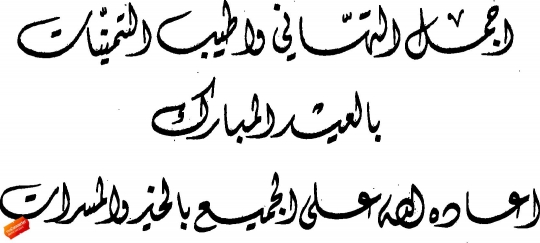 اجمل التهاني واطيب التمنيّات
بالعيد المبارك
اعاده الله على الجميع بالخير والمسرات